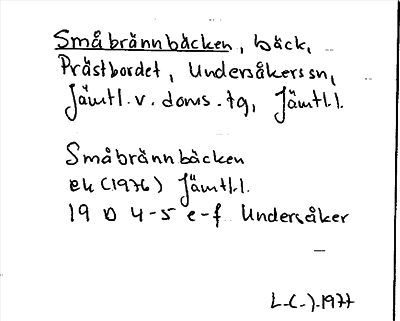 Småbrännbäcken, bäck,
Prästbordet, Undersåkers sn,
Jämtl. v. doms. tg, Jämtl. l.
Småbrännbäcken
ek (1976) Jämtl. l.
19 D 4-5 e-f Undersåker
L-(-).1977